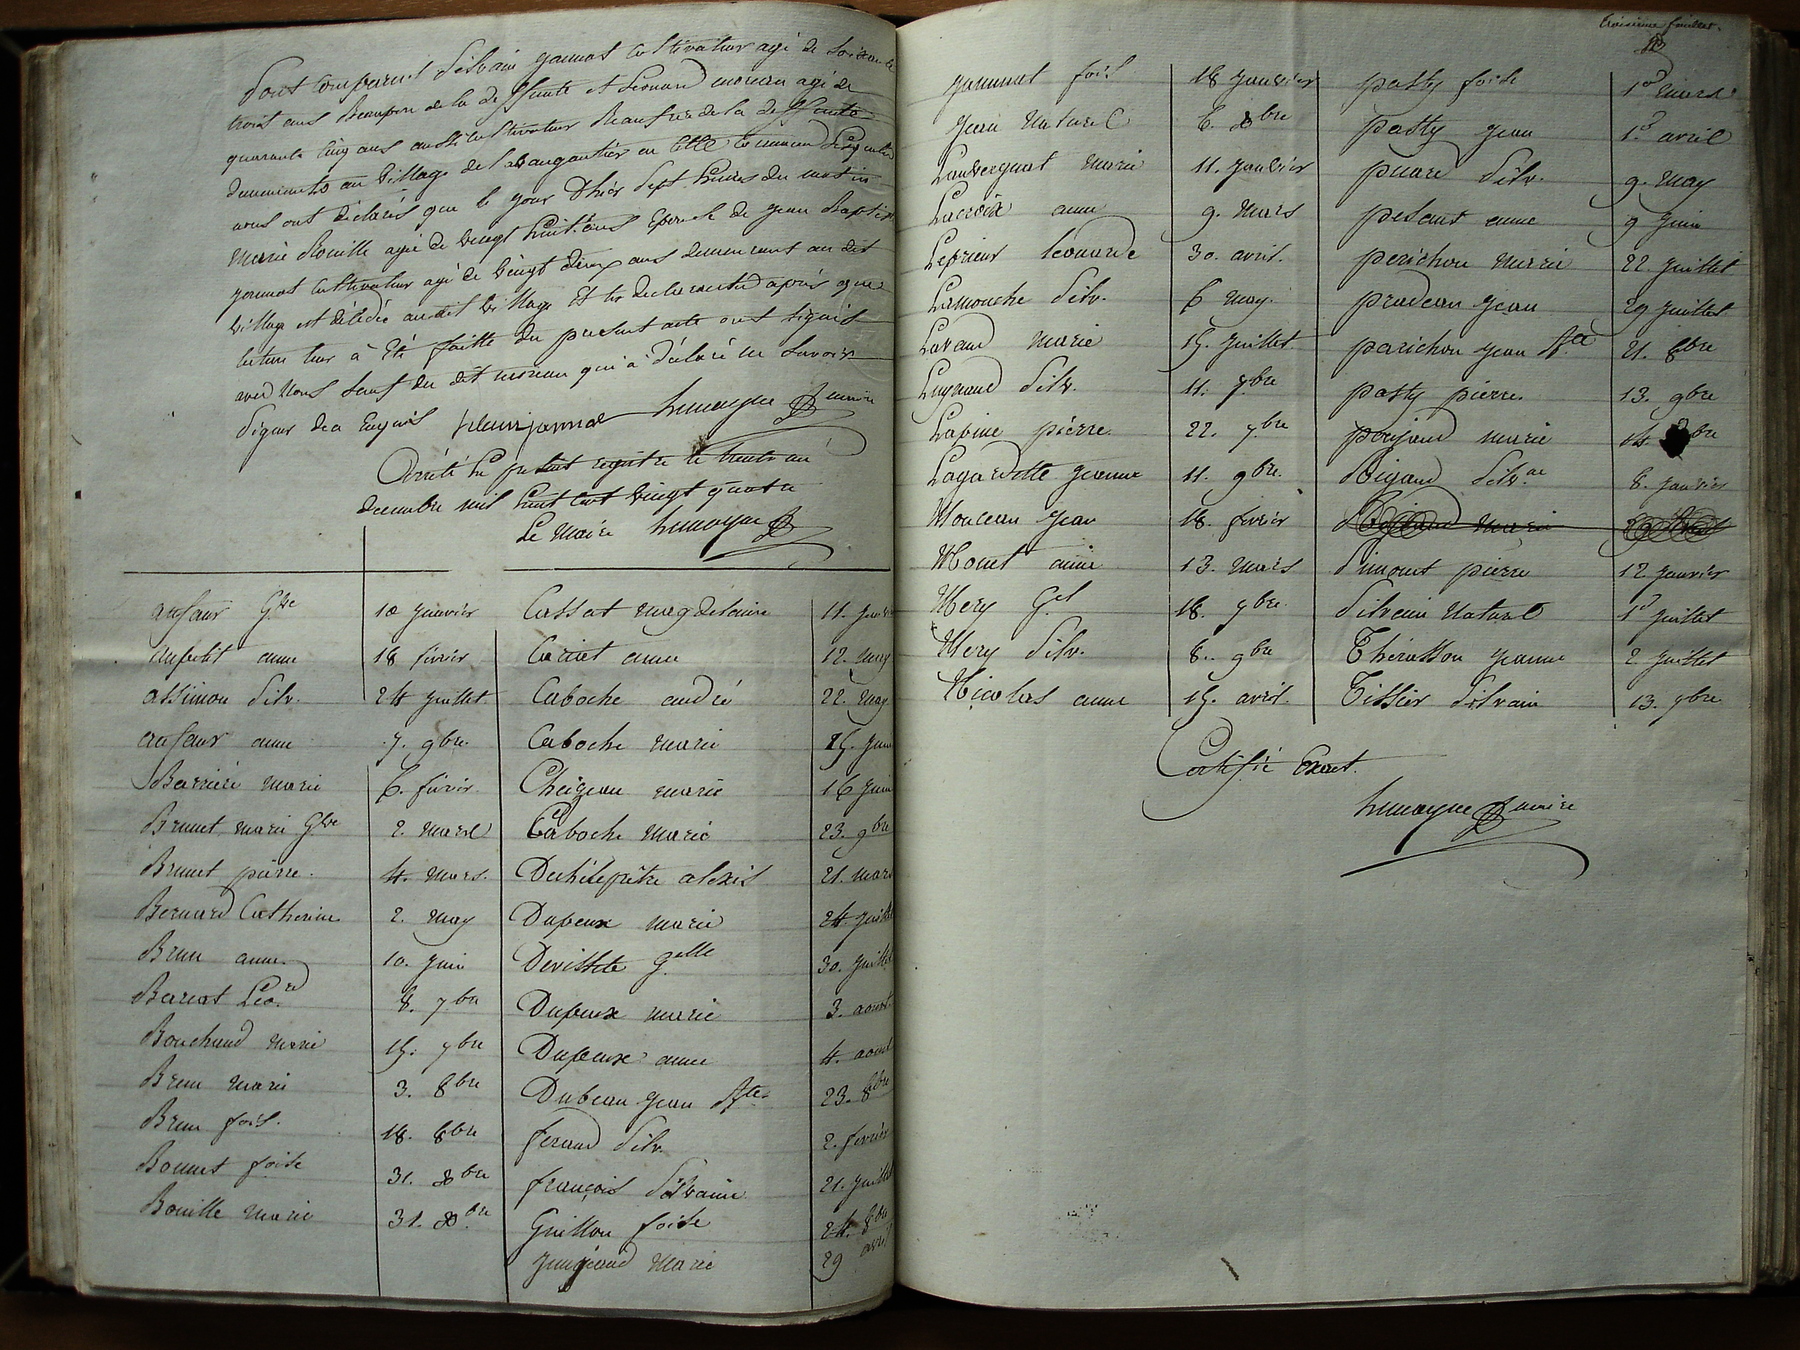 Sont comparut Silvain jannot cultivateur agé de soixante
trois ans Beaupere de la deffunte et Leonard moreau agé de
quarante cinq ans aussi cultivateur Beaufrere de la deffunte
demeurants au village de en cette commune Lesquels
nous ont déclarés que le jour d'hier sept heures du matin
Marie Rouille agée de vingt huit ans Epouse de jean Baptiste
jannot cultivateur agé de vingt deux ans demeurant au dit
village est décédée audit village Et les declarants après que
lecture leur à été faitte du present acte ont signés
avec Nous sauf du dit moreau qui à déclaré ne savoir
signer de ce Enquis maire
Arrêté le present registre le trente un
decembre mil huit cent vingt quatre
Le Maire
aufaur Gbe 10 janvier Cassat magdelaine 11. janvier
anne 18 fevrier Coriet anne 12. may
assimon Silv. 24 juillet Caboche andré 22. may
aufaur anne 7. 9bre Caboche marie 25. juin
Barriere marie 6. fevrier Cheigeau marie 16 juin
Brunet marie Gbe 2. mars Caboche Marie 23. 9bre
Brunet pierre. 4. mars. Dechileprêtre alexis 21. mars
Bernard Catherine 2. may Dupeux marie 24. juillet
Brun anne 10. juin Gelle 30. juillet
Bariat Leo.rd 8. 7bre Dupeux marie 3. aoust
Bouchaud marie 15. 7bre Dupeux anne 4. aoust
Brun marie 3. 8bre Dubeau jean Bte. 23. 8bre
Brun fois. 18. 8bre feraud Silv. 2. fevrier
Bonnet foise 31. 8bre françois Silvaine 21. juillet
Bouille marie 31. 8bre Guillon foise 24. 8bre
marie 29 avril
troisieme feuillet
jammot fois 18 janvier pasty foise 1er mars
jean Naturel 6. 8bre pasty jean 1er avril
Lauvergnat Marie 11. janvier Silv. 9. may
Lacroix anne 9. mars pesant anne 9 juin
Leprieur Leonarde 30. avril. perichon marie 22. juillet
Lamouche Silv. 6 may. pradeau jean 29 juillet
Lavaud marie 15. juillet parichon jean Bte 21. 8bre
Silv. 11. 7bre pasty pierre. 13. 9bre
Lapine pierre 22. 7bre marie 14
Lagardette jeanne 11. 9bre. Rigaud Silv.ne 8. janvier
Monceau jean 18. fevrier marie
Monet anne 13. mars Simonet pierre 12. janvier
Mery Gel 18. 7bre Silvain Naturel 1er juillet
Mery Silv. 8. 9bre Therasson jeanne 2. juillet
Nicolas anne 15. avril. Tissier Silvain 13. 9bre
Certifié Exact.
maire